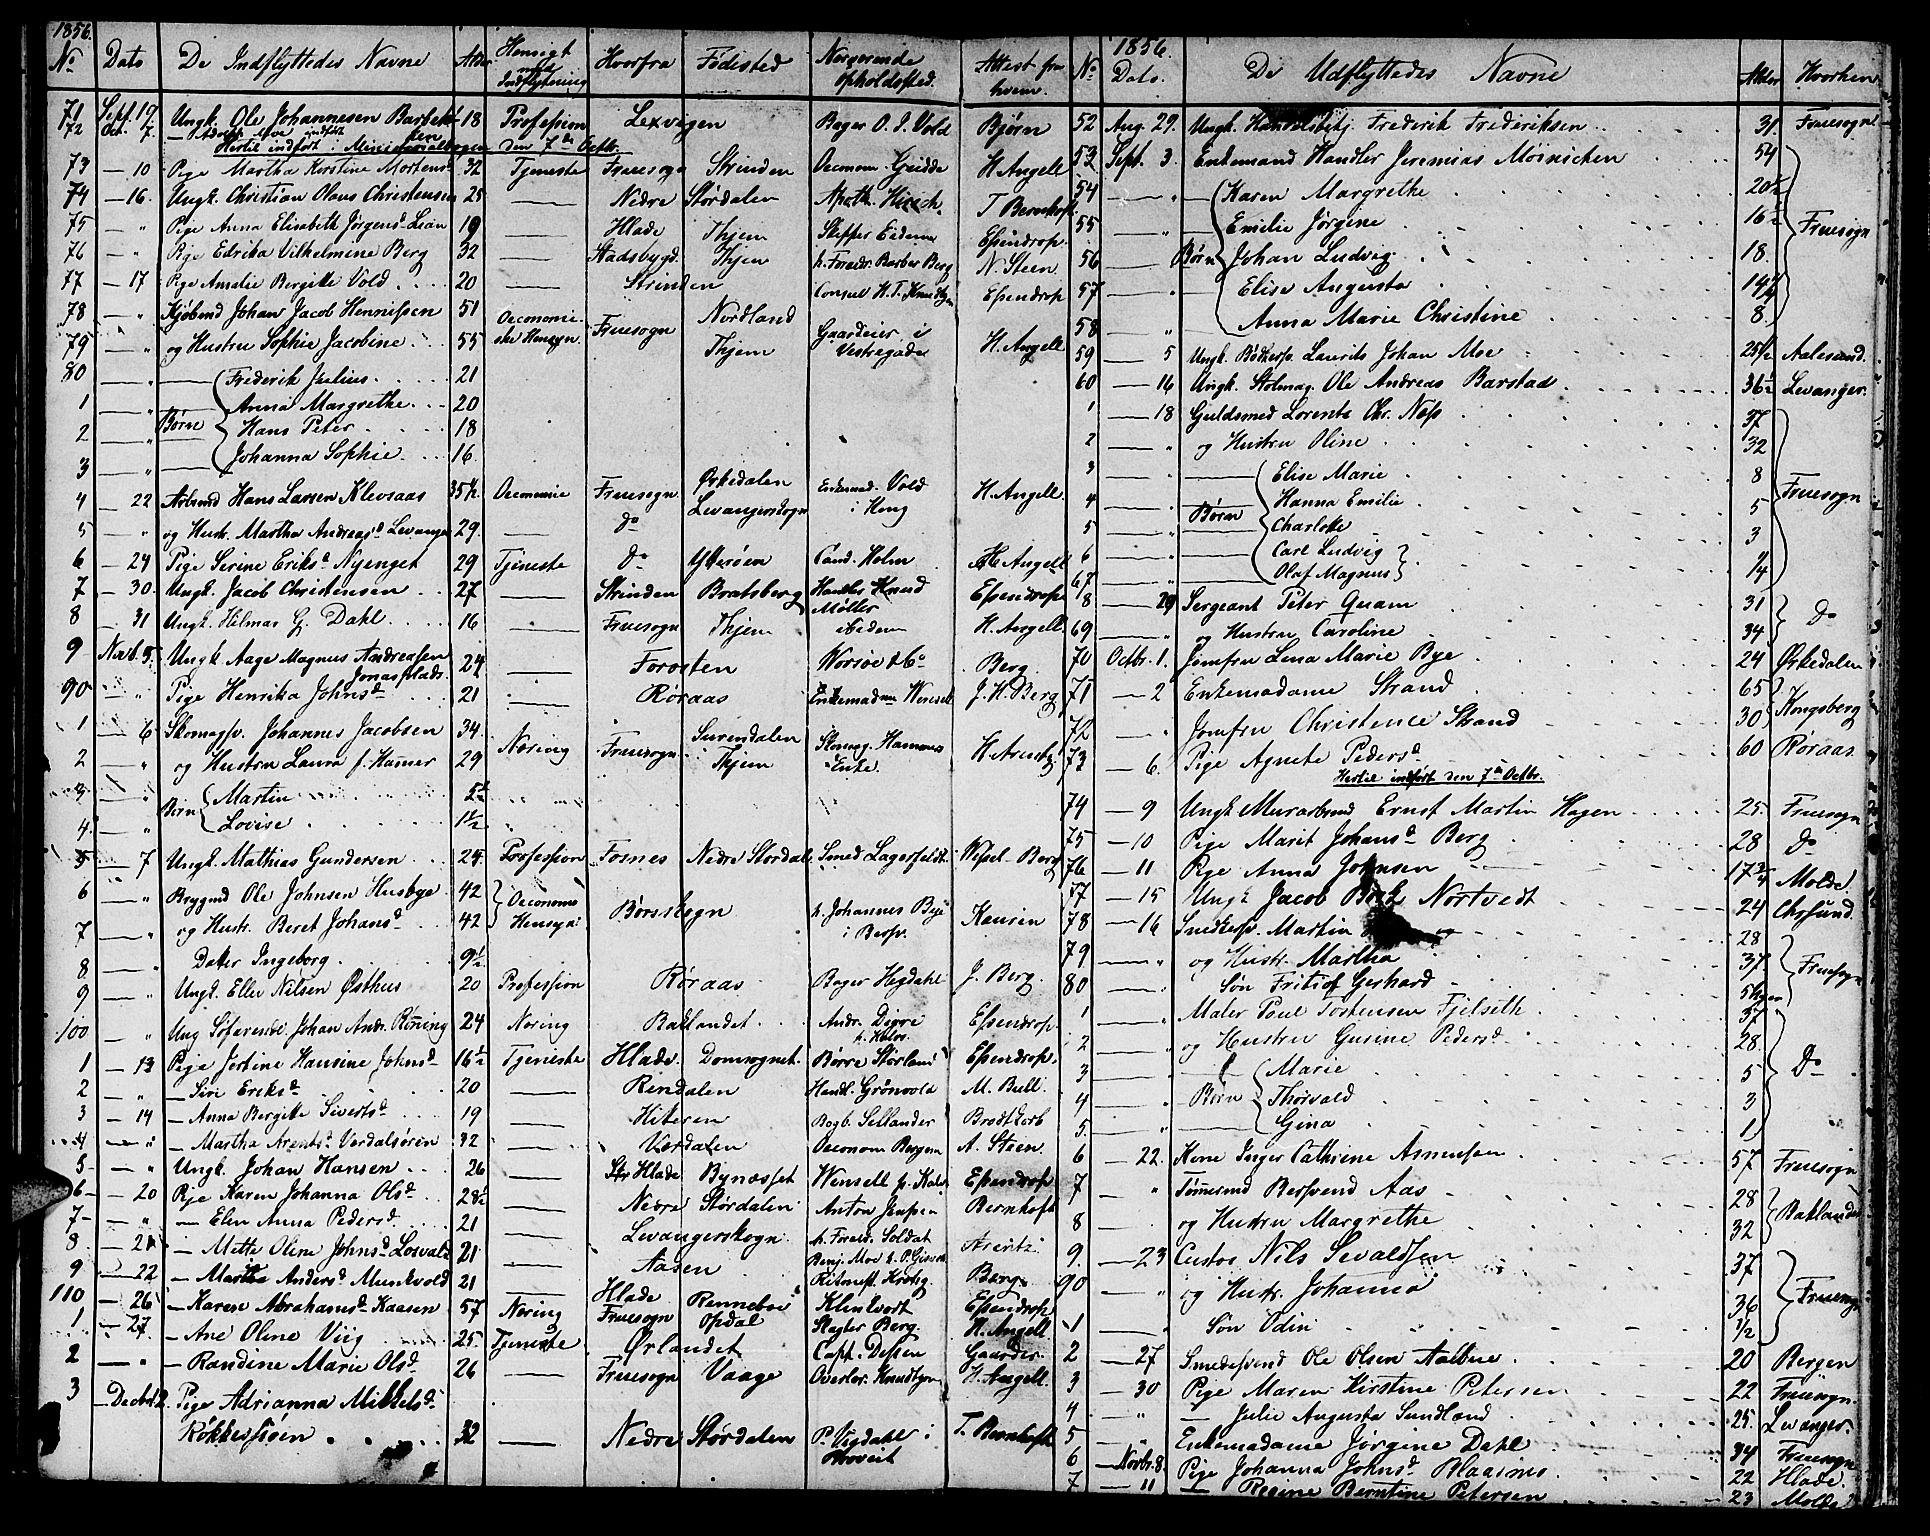 1856.
No Dato De Indflyttedes Navne Alder Hensigt med Indflytning Hvorfra Fødested Nærværende Opholdssted. Attest fra hvem.
71 Sept. 19. Ungk. Ole Johannesen Barbek 18 Profession Lexvigen Bager O. J. Vold Bjørn
72 Oct. 7.
Hertil indført i Ministerialbogen den 7de Octb.
73 — 10 Pige Martha Kirstine Mortensd 32 Tjeneste Fruesogn Strinden Oeconom Gridde H. Angell
74 — 16. Ungk. Christian Olaus Christensen 25 — Nedre Størdalen Apoth. Hirsch. T. Bernhoft.
75 — " Pige Anna Elisabeth Jørgensd Lian 19 — Hlade Thjem Skipper Eidem Eßendrop.
76 — " Pige Edrika Vilhelmine Berg 32 — Stadsbygd. Thjem h. Forædr. Barber Berg N. Steen
77 — 17 Pige Amalie Bergitte Vold 20 — Strinden Consul H. T. Knudtzon Eßendrop
78 — " Kjøbmd Johan Jacob Hennißen 51 Oeconomiske Hensyn. Fruesogn Nordland Gaardeier i Vestregade H. Angell
79 — " og Hustru Sophie Jacobine 55 Thjem
80 — " Frederik Julius 21
1 — " Anna Margrethe 20
2 — " Børn Hans Peter 18
3 — " Johanna Sophie 16.
4 — 22 Arbmd Hans Larsen Klevsaas 35½ Oeconomie Fruesogn Ørkedalen Enkemad. Vold i Kong H. Angell.
5 — " og Hustr. Martha Andreasd Levanger 29. — do Levangerskogn
6 — 24 Pige Serine Eriksd Nyenget 29 Tjeneste do Ytterøen Cand. Holm H. Angell
7 — 30 Ungk. Jacob Christensen 27 — Strinden Bratsberg Handler Knud Møller Eßendrop
8 — 31 Ungk. Hilmar G. Dahl 16 — Fruesogn Thjem ibidem H. Angell.
9 Novb. 5. Ungk. Aage Magnus Andreasen Jonasplads. 24 — Forosten Worsøe & Co Berg
90 — " Pige Henrika Johnsd 21 — Røraas Enkemadm Wensell J. H. Berg
1 — 6 Skomagsv. Johannes Jacobsen 34. Næring Fruesogn Surendalen Skomag. Hammers Enke. H. Arentz
2 — " og Hustru Laura f. Hamer 29 Thjem
3 — " Børn Martin
4. — " Lovise 1½
5 — 7 Ungk. Mathias Gundersen 24 Profession Fosnes Nedre Stordal. Smed Lagerfeldt. Weßel-Berg
6 — " Brygmd Ole Johnsen Husbye 42 Oeconoms Hensyn Børseskogn h. Johannes Bye i Bersv. Hansen
7 — " og Hustr. Beret Johansd 42
8 — " Datter Ingeborg 9½
9 — " Ungk. Eller Nilsen Østhus 20 Profession Røraas Bager Hegdahl J. Berg.
100 — " Ung Søfarende Johan Andr. Rønning 24 Næring Baklandet Andr. Digre Eßendrop.
1 — 13 Pige Jertine Hansine Johnsd 16½ Tjeneste Hlade. Domsognet. Børre Størland Eßendrop.
2 — " — Siri Eriksd 20 — Rindalen Handl. Grønvold M. Bull
3 — 14 — Anna Bergitte Sivertsd 19 — Hiteren Bogb. Sellander Brodtkorb
4 — " — Martha Arentsd Verdalsøren 32 — Værdalen Oeconom Bergem A. Steen
5 — " Ungk. Johan Hansen 26 — Hlade Bynæsset Wensell Eßendrop
6 — 20 Pige Karen Johanna Olsd 28½ — Nedre Størdalen Anton Jenßen Bernhoft
7 — " — Elen Anna Pedersd 21 — Levangerskogn h. Foræd. Soldat
8 — 21 — Mette Oline Johnsd Losvald 21 — Aasen Benj. Moe Arentz
9 — 22 — Martha Andersd Munkvold 21 — Hlade Ritmest. Krohg. Berg.
110 — 26 — Karen Abrahamsd Kaasen 57 Næring Fruesogn Renneboe Klinkvort Eßendrop
1 — 27 — Ane Oline Viig 25. Tjeneste Ørlandet Opdal Slagter Berg. H. Angell
2 — " — Randine Marie Olsd 26 — Fruesogn Vaage Capt. Deßen Gaarder.
3 — Decbr 2. Pige Adrianna Mikkelsd Overlær. Knudtzon H. Angell.
Røkkesøen 32 — Nedre Størdalen P. Vigdahl i Provsti T. Bernhoft
1856.
No Dato. De Udflyttedes Navne Alder Hvorhen
52 Aug. 29. Ungk. Handelsbetj. Frederik Frederiksen 31. Fruesogn
53 Sept. 3. Enkemand Handler Jeremias Møinichen 54
54 — " Karen Margrethe 20½
55 — " Emilie Jørgine 16½ Fruesogn
56 — " Børn Johan Ludvig 18.
57 — " Elise Augusta
58 — " Anna Marie Christine 8.
59 — 5 Ungk. Bødkersv. Laurits Johan Moe 25½ Aalesund.
60 — 16 Ungk. Stolmag. Ole Andreas Barstad 36½ Levanger.
1 — 18 Guldsmed Lorents Chr. Næss 37
2 — " og Hustru Oline 32
3 — " Elise Marie 8
4 — " Børn Hanna Emilie 5 Fruesogn
5 — " Charlotte 3
6 — " Carl Ludvig
67 — " Olaf Magnus ¼
8 — 29 Sergeant Peter Quam 31 do
69 — " og Hustru Caroline 34
70 Octbr. 1. Jomfru Lena Marie Bye 24 Ørkedalen
71 — 2 Enkemadame Strand 65 Kongsberg
72 — " Jomfru Christence Strand 30
73 — 6. Pige Agnete Pedersd 60 Røraas
Hertil indført den 7de Octbr.
74 — 9 Ungk Murarbmd Ernst Martin Hagen 25. Fruesogn
75 — 10 Pige Marit Johansd Berg 28 do
76 — 11 Pige Anna Johnsen 17¾ Molde.
77 — 15 Ungk Jacob Nortvedt 24 Chrsund.
78 — 16 Snedkersv. Martin 28
79 — " og Hustr. Martha 37 Fruesogn
80 — " Søn Fritiof Gerhard
1 — " Maler Poul Tostensen Fjelseth 37
2 — " og Hustru Gusine Pedersd 28.
3 — " Marie 5 do
4 — " Børn Thorvald 3
5. — " Gina 1
6 — 22. Kone Inger Cathrine Asmusen 57 Fruesogn
7 — " Tømmermd Bersvend Aas 28 Baklandet
8 — og Hustru Margrethe 32
9. — 23 Custos Nils Sevaldsen 37
90 — " og Hustr. Johanna 36 Fruesogn
1 — " Søn Odin ½
2 — 27 Smedesvend Ole Olsen Aalbue 20 Bergen
3 — 30 Pige Maren Kirstine Petersen 22 Fruesogn.
4 — " — Julie Augusta Sundland 25. Levanger.
5 — " Enkemadame Jørgine Dahl 34 Fruesogn
6 — Novbr. 8. Pige Johanna Johnsd Blaasmo 22 Hlade.
7 — 11 — Regine Berntine Petersen 23 Molde